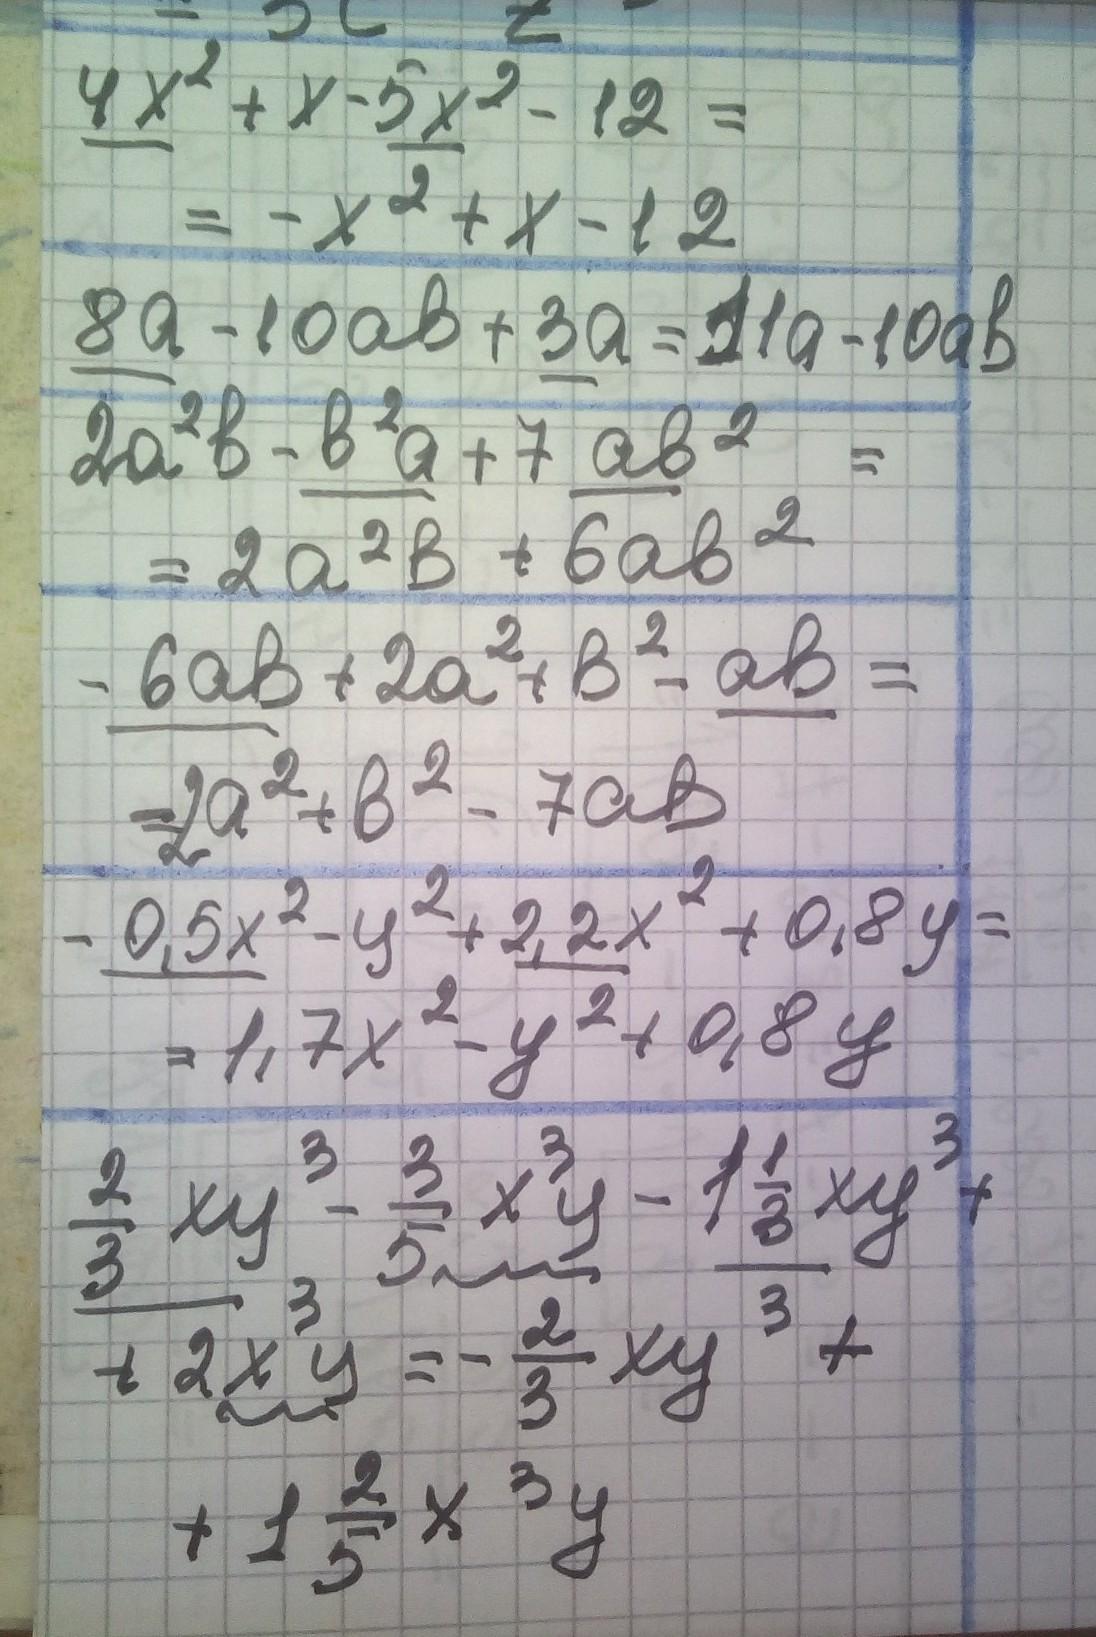 4x² + x - 5x² - 12 =
= -x² + x - 12
8a - 10ab + 3a = 11a - 10ab
2a²b - b²a + 7 ab² =
= 2a²b + 6ab²
- 6ab + 2a² + b² - ab =
= 2a² + b² - 7ab
- 0,5x² - y² + 2,2x² + 0,8y =
= 1,7x² - y² + 0,8y
2/3 xy³ - 3/5 x³y - 1 1/3 xy³ +
+ 2x³y = - 2/3 xy³ +
+ 1 2/5 x³y